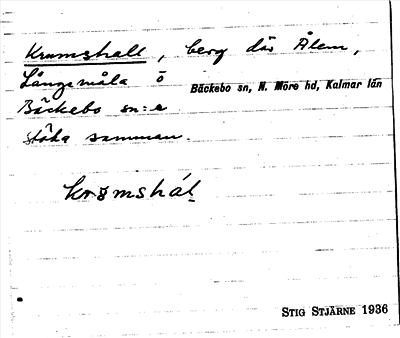 Krumshall, berg där Ålem,
Långemåla o
Bäckebo sn, N. Möre hd, Kalmar län
Bäckebo sn:r
stöta samman.
STIG STJÄRNE 1936